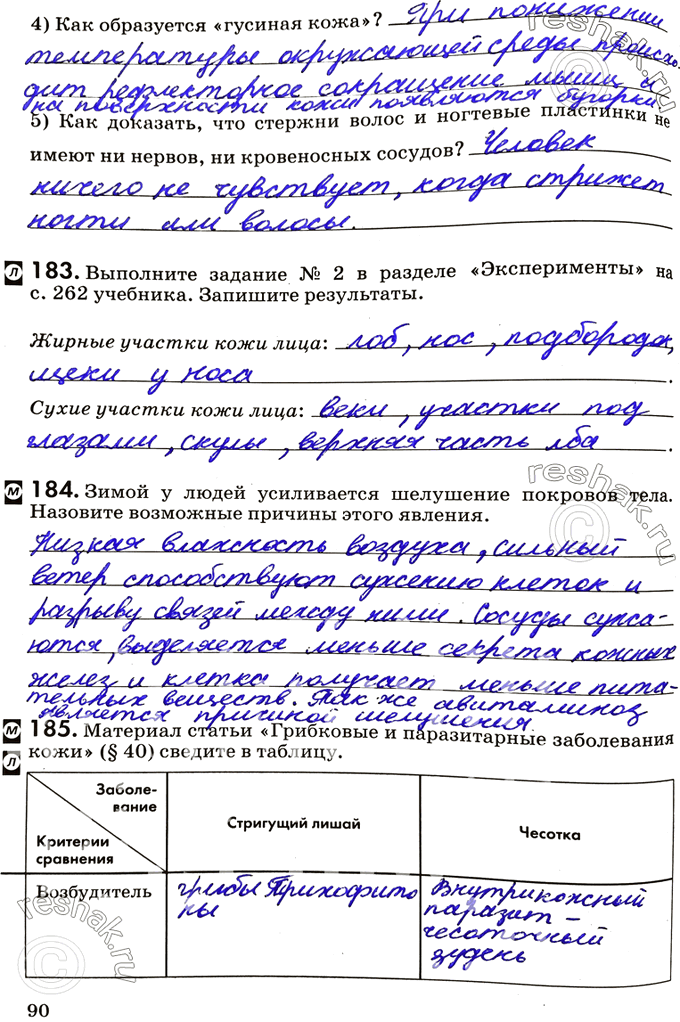 4) Как образуется «гусиная кожа»? При понижении
температуры окружающей среды происхо-
дит рефлекторное сокращение мышц и
на поверхности кожи появляются бугорки
5) Как доказать, что стержни волос и ногтевые пластинки не
имеют ни нервов, ни кровеносных сосудов? Человек
ничего не чувствует, когда стрижет
ногти или волосы.
Л 183. Выполните задание № 2 в разделе «Эксперименты» на
с. 262 учебника. Запишите результаты.
Жирные участки кожи лица: лоб, нос, подбородок,
щеки у носа.
Сухие участки кожи лица: веки, участки под
глазами, скулы, верхняя часть лба.
М 184. Зимой у людей усиливается шелушение покровов тела.
Назовите возможные причины этого явления.
Низкая влажность воздуха, сильный
ветер способствуют сужению клеток и
разрыву связей между ними. Сосуды сужа-
ются, выделяется меньше секрета кожных
желез и клетка получает меньше пита-
тельных веществ. Так же авитаминоз
является причиной шелушения.
М Л 185. Материал статьи «Грибковые и паразитарные заболевания
кожи» (§ 40) сведите в таблицу.
Заболе-
вание
Критерии
сравнения
Стригущий лишай
Чесотка
Возбудитель
грибы Трихофито
ны
Внутрикожный
паразит –
чесоточный
зудень
90
reshak.ru
reshak.ru
reshak.ru
reshak.ru